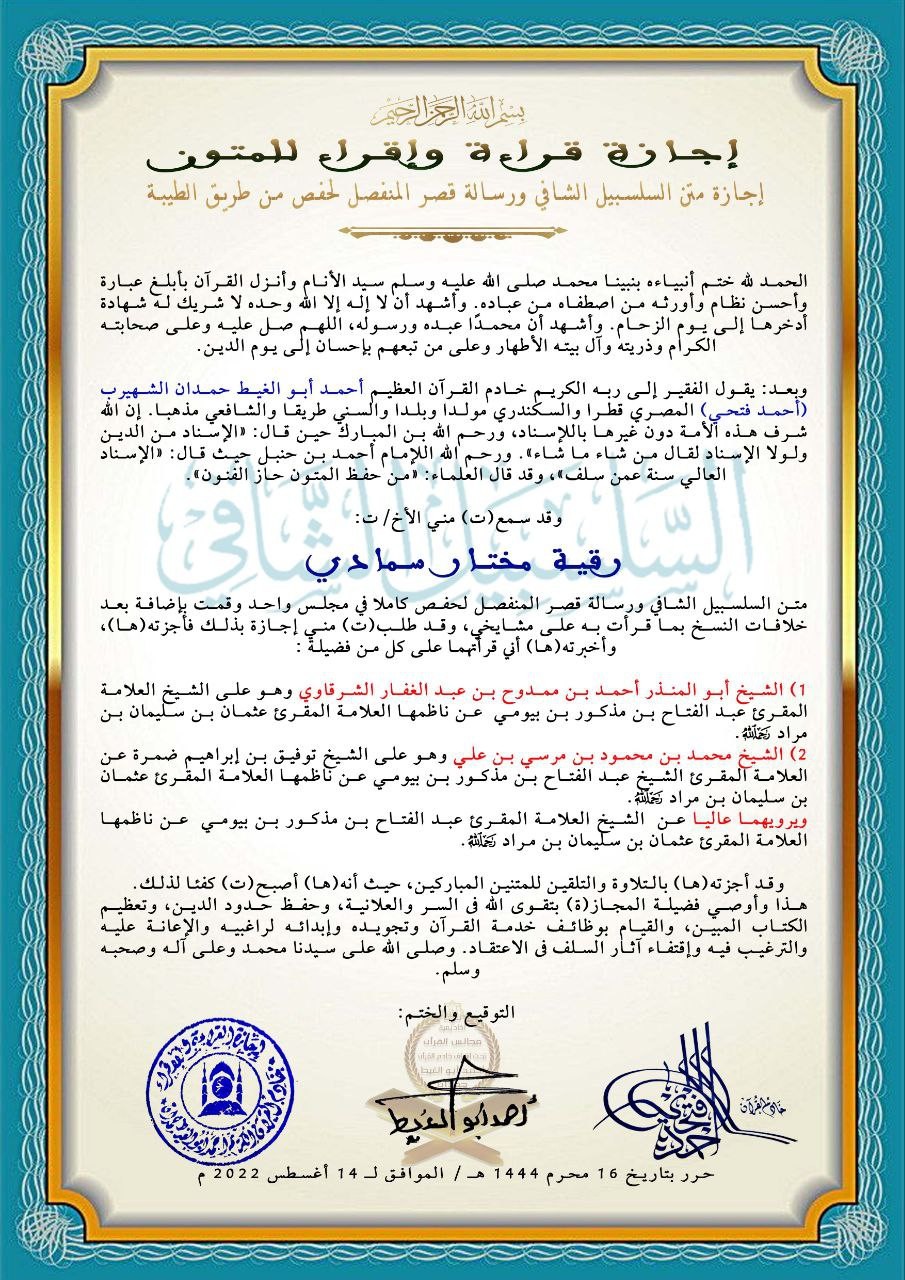 بسم الله الرحمن الرحيم
إجازة قراءة وإقراء للمتون
إجازة متن السلسبيل الشافي ورسالة قصر المنفصل لحفص من طريق الطيبة
الحمد لله ختم أنبياءه بنبينا محمد صلى الله عليه وسلم سيد الأنام وأنزل القرآن بأبلغ عبارة
وأحسن نظام وأورثه من اصطفاه من عباده. وأشهد أن لا إله إلا الله وحده لا شريك له شهادة
أدخرها إلى يوم الزحام. وأشهد أن محمدًا عبده ورسوله، اللهم صل عليه وعلى صحابته
الكرام وذريته وآل بيته الأطهار وعلى من تبعهم بإحسان إلى يوم الدين.
وبعد: يقول الفقير إلى ربه الكريم خادم القرآن العظيم أحمد أبو الغيط حمدان الشهيرب
(أحمد فتحي) المصري قطرا والسكندري مولدا وبلدا والسني طريقا والشافعي مذهبا. إن الله
شرف هذه الأمة دون غيرها باللإسناد، ورحم الله بن المبارك حين قال: «الإسناد من الدين
ولولا الإسناد لقال من شاء ما شاء». ورحم الله اللإمام أحمد بن حنبل حيث قال: «الإسناد
العالي سنة عمن سلف»، وقد قال العلماء: «من حفظ المتون حاز الفنون».
السلسبيل الشافي
وقد سمع(ت) مني الأخ/ ت:
رقية مختار سمادي
متن السلسبيل الشافي ورسالة قصر المنفصل لحفص كاملا في مجلس واحد وقمت بإضافة بعد
خلافات النسخ بما قرأت به على مشايخي، وقد طلب(ت) مني إجازة بذلك فأجزته(ها)،
وأخبرته(ها) أني قرأتهما على كل من فضيلة :
1) الشيخ أبو المنذر أحمد بن ممدوح بن عبد الغفار الشرقاوي وهو على الشيخ العلامة
المقرئ عبد الفتاح بن مذكور بن بيومي عن ناظمها العلامة المقرئ عثمان بن سليمان بن
مراد رحمه الله.
2) الشيخ محمد بن محمود بن مرسي بن علي وهو على الشيخ توفيق بن إبراهيم ضمرة عن
العلامة المقرئ الشيخ عبد الفتاح بن مذكور بن بيومي عن ناظمها العلامة المقرئ عثمان
بن سليمان بن مراد رحمه الله.
ويرويهما عاليا عن الشيخ العلامة المقرئ عبد الفتاح بن مذكور بن بيومي عن ناظمها
العلامة المقرئ عثمان بن سليمان بن مراد رحمه الله.
وقد أجزته(ها) بالتلاوة والتلقين للمتنين المباركين، حيث أنه(ها) أصبح(ت) كفئا لذلك.
هذا وأوصي فضيلة المجاز(ة) بتقوى الله فى السر والعلانية، وحفظ حدود الدين، وتعظيم
الكتاب المبين، والقيام بوظائف خدمة القرآن وتجويده وإبدائه لراغبيه والإعانة عليه
والترغيب فيه وإقتفاء آثار السلف فى الاعتقاد. وصلى الله على سيدنا محمد وعلى آله وصحبه
وسلم.
التوقيع والختم:
أكاديمية
مجالس القرآن
إجازة القراءة والإقراء
أحمد أبو الغيط
خادم القرآن
أحمد فتحي
حرر بتاريخ 16 محرم 1444 هـ / الموافق لـ 14 أغسطس 2022 م